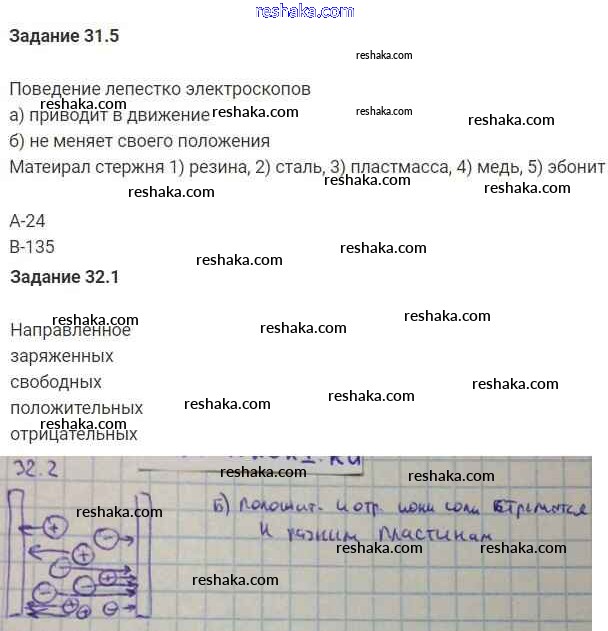 gdz.reshak.ru
Задание 31.5
reshaka.com
Поведение лепестко электроскопов
reshaka.com reshaka.com reshaka.com
а) приводит в движение
reshaka.com
б) не меняет своего положения
Матеирал стержня 1) резина, 2) сталь, 3) пластмасса, 4) медь, 5) эбонит
reshaka.com reshaka.com reshaka.com
А-24
В-135
reshaka.com reshaka.com
Задание 32.1
reshaka.com reshaka.com reshaka.com
Направленное
заряженных
свободных
reshaka.com reshaka.com reshaka.com
положительных
reshaka.com
отрицательных
32.2
reshaka.com reshaka.com
reshaka.com
б) положит. и отр. ионы соли стремятся
к разним пластинам
reshaka.com reshaka.com
reshaka.com